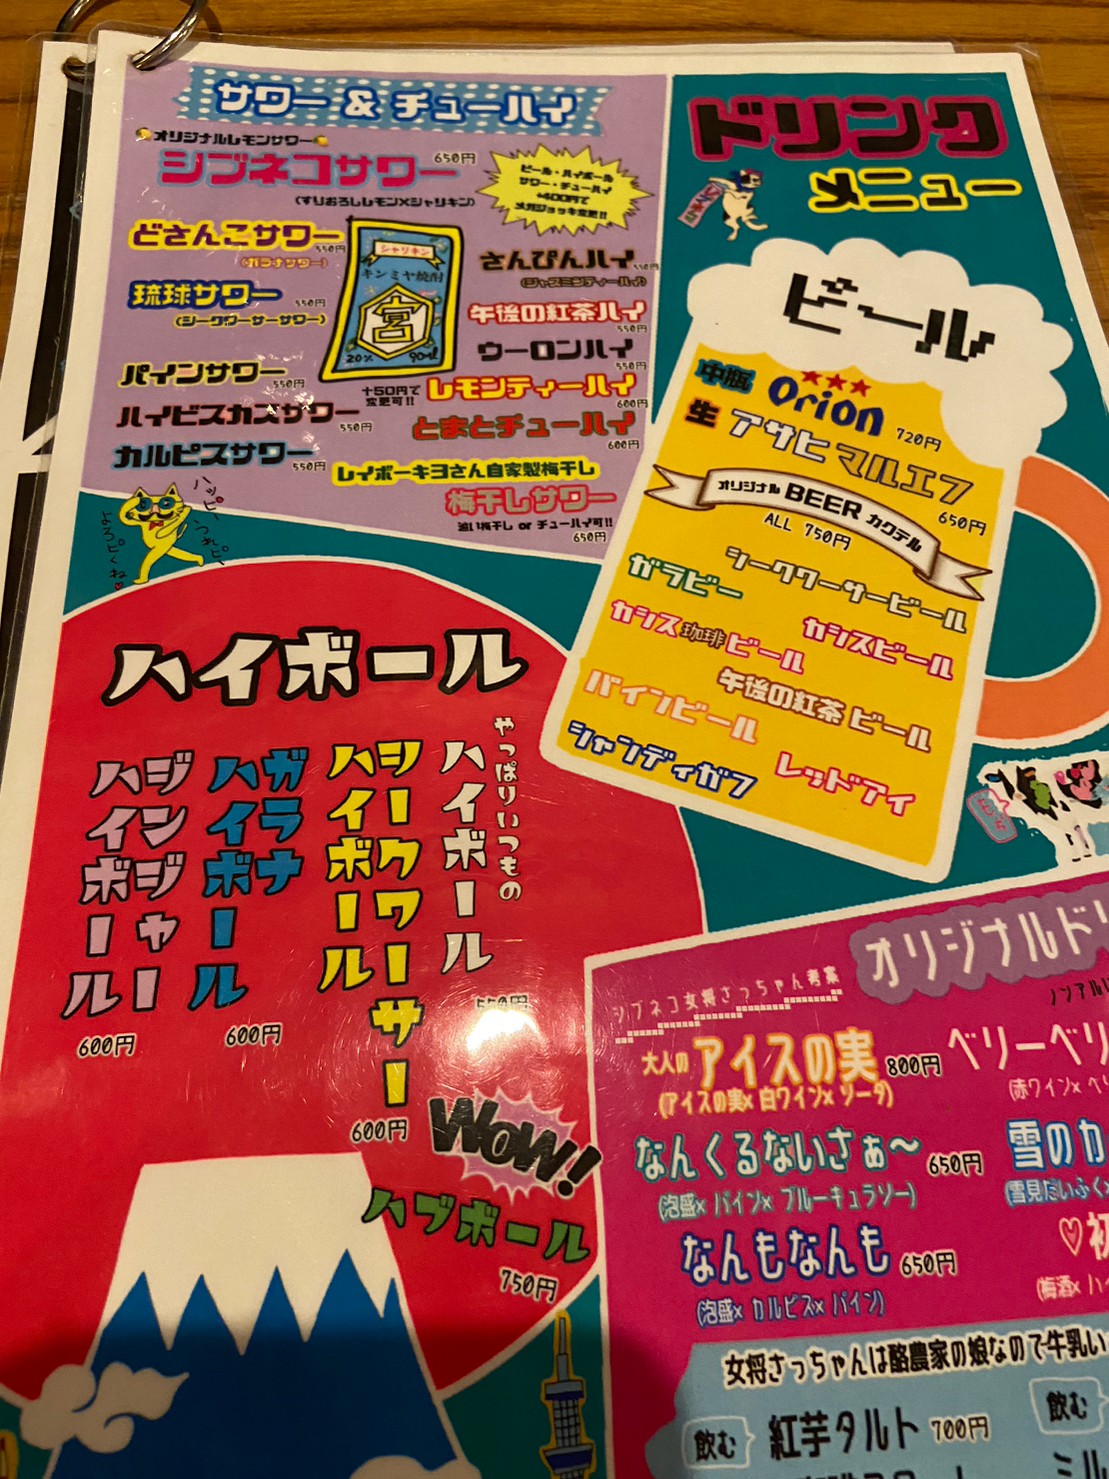 サワー & チューハイ
オリジナルレモンサワー
シブネコサワー 650円
(すりおろしレモン×シャリキン)
ビール・ハイボール
サワー・チューハイ
+400円で
メガジョッキ変更!!
どさんこサワー 550円
(ガラナサワー)
琉球サワー 550円
(シークワーサーサワー)
パインサワー 550円
ハイビスカスサワー 550円
カルピスサワー 550円
シャリキン
キンミヤ焼酎
宮
20% 90ml
+50円で
変更可!!
さんぴんハイ 550円
(ジャスミンティーハイ)
午後の紅茶ハイ 550円
ウーロンハイ 550円
レモンティーハイ 600円
とまとチューハイ 600円
レイボーキヨさん自家製梅干し
梅干しサワー
濃い梅干し or チューハイ可!!
650円
ハッピー
うれピー
よろピくね
ドリンク
メニュー
ビール
中瓶 Orion 720円
生 アサヒ マルエフ 650円
オリジナル BEER カクテル
ALL 750円
シークワーサービール
ガラビー
カシスビール
カシス珈琲ビール
午後の紅茶 ビール
パインビール
レッドアイ
シャンディガフ
ハイボール
やっぱりいつもの
ハイボール
550円
シークワーサー
ハイボール
600円
ガラナ
ハイボール
600円
ジンジャー
ハイボール
600円
WOW!
ハブボール
750円
オリジナルド
ノンアル
シブネコ女将さっちゃん考案
大人の アイスの実 800円
(アイスの実× 白ワイン× ソーダ)
ベリーベリ
(赤ワイン× ベリ
なんくるないさぁ〜 650円
(泡盛× パイン× ブルーキュラソー)
雪のカ
(雪見だいふく×
なんもなんも 650円
(泡盛× カルピス× パイン)
♡初
(梅酒× ハイ
女将さっちゃんは酪農家の娘なので牛乳い
飲む 紅芋タルト 700円
飲む
ミル